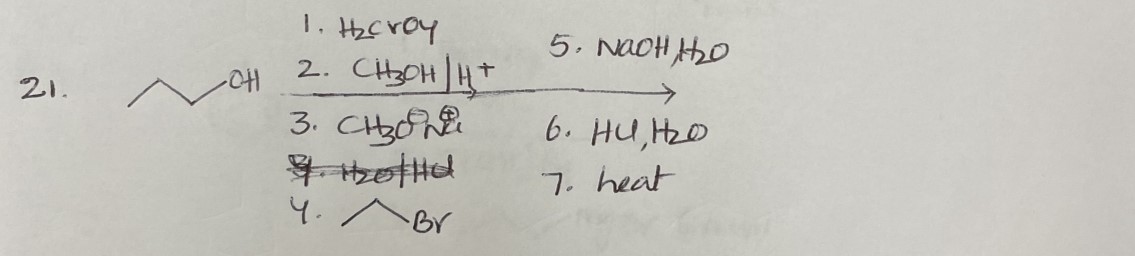 21.
OH
1. H2CrO4
2. CH3OH/H+
3. CH3O⊖Na⊕
4. Br
5. NaOH, H2O
6. HCl, H2O
7. heat